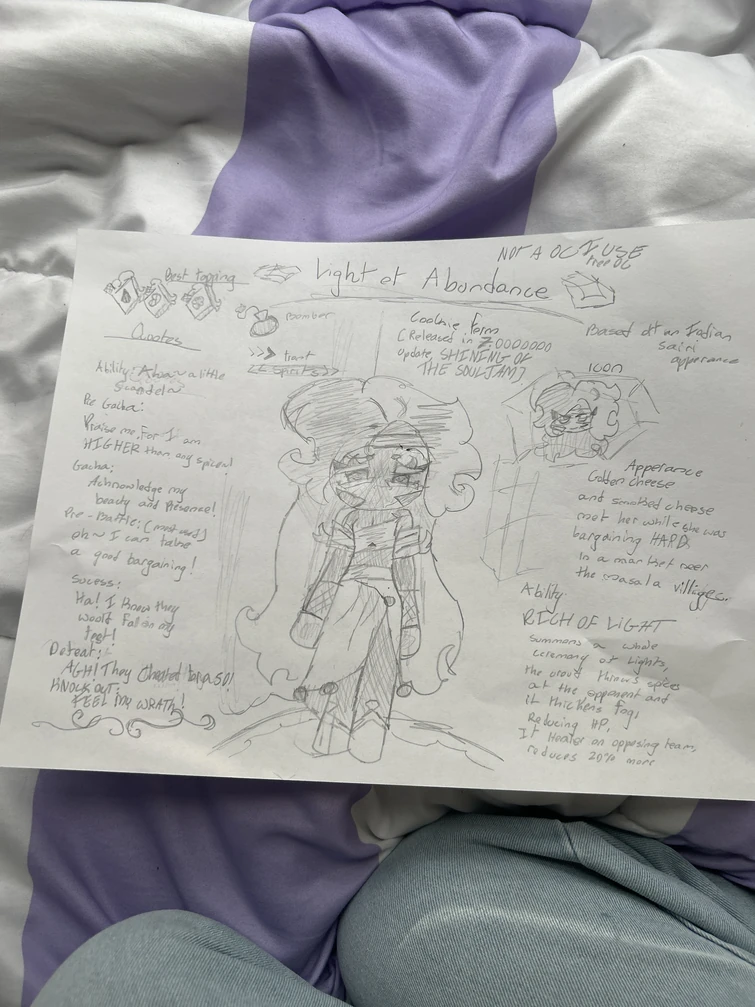 NOT A OC I USE
free OC
Best topping
Light of Abondance
Bomber
Cookie form
(Released in 7.0000000
update, SHINING OF
THE SOULJAM)
Based of an Indian
sairi
apperance
trait
(( Spirits ))
ICON
Quotes
Ability: a little
Pre Gacha:
Praise me, For I am
HIGHER then any spices!
Gacha:
Acknowledge my
beauty and presence!
Pre-Battle: (most used)
oh~ I can take
a good bargaining!
Sucess:
Ha! I knew they
would fall on my
feet!
Defeat:
AGH! They cheated
KNOCK OUT:
FEEL MY WRATH!
Apperance
Golden cheese
and smoked cheese
met her while she was
bargaining HARD
in a market near
the masala villiges.
Ability:
RICH OF LIGHT
summons a whole
ceremony of lights,
the crowd throws spices
at the opponent and
it thickens fog,
Reducing HP,
If Healer on opposing team,
reduces 20% more